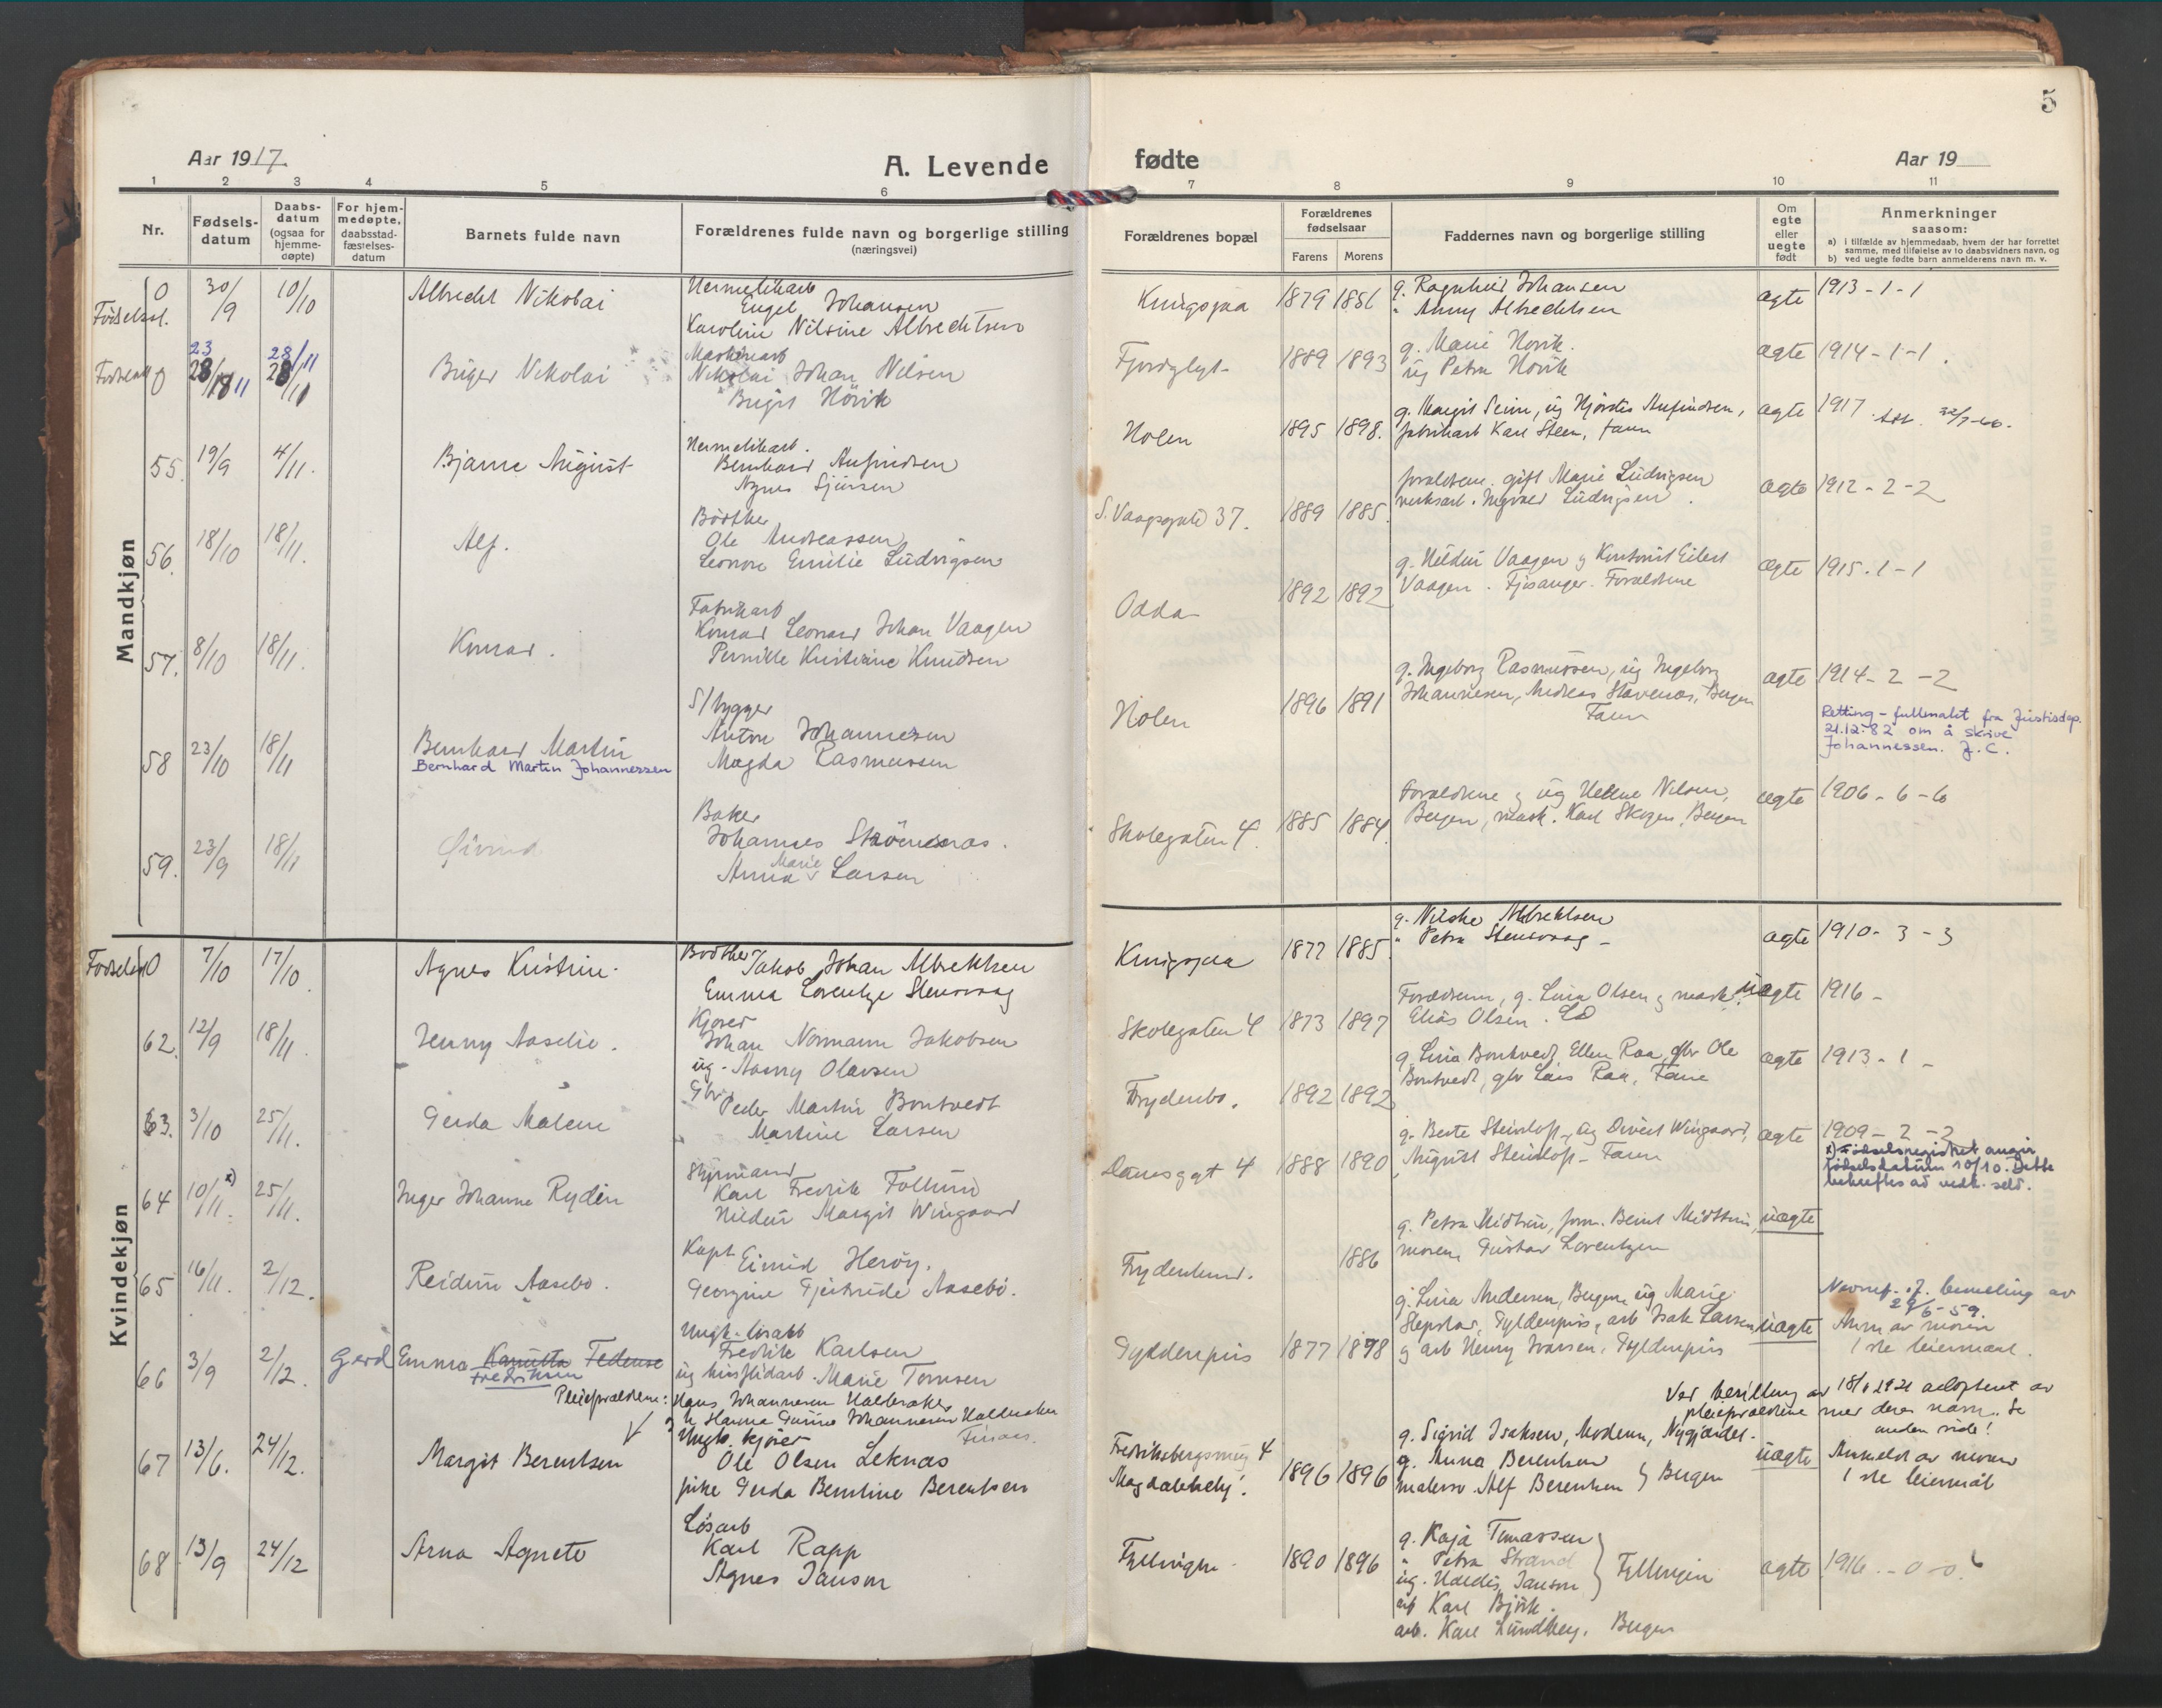 5
Aar 1917.
A. Levende
fødte
Aar 19
1 2 3 4 5 6 7 8 9 10 11
Nr.
Fødsels-
datum
Daabs-
datum
(ogsaa for
hjemme-
døpte)
For hjem-
medøpte,
daabsstad-
fæstelses-
datum
Barnets fulde navn
Forældrenes fulde navn og borgerlige stilling
(næringsvei)
Forældrenes bopæl
Forældrenes
fødselsaar
Farens Morens
Faddernes navn og borgerlige stilling
Om
egte
eller
uegte
født
Anmerkninger
saasom:
a) i tilfælde av hjemmedaab, hvem der har forrettet
samme, med tilføielse av to daabsvidners navn, og
b) ved uegte fødte barn anmelderens navn m. v.
Mandkjøn
0 30/9 10/10 Albrecht Nikolai
Hermetikarb
Engel Johansen
Karoline Nilsine Albrechtsen
1879 1886
g. Ragnhild Johansen
" Anny Albrechtsen
ægte 1913-1-1
0 23 28/11
Birger Nikolai
Maskinarb
Nikolai Johan Nilsen
Birgit Hövik
1889 1893
g. Marie Hövik.
ug Petra Hövik
ægte 1914-1-1.
55. 19/9 4/11. Bjarne August
Hermetikarb.
Bernhard Anfindsen
Agnes Sjursen
Holen 1895 1898.
g. Margit Seim, ug Hjördis Anfindsen,
fabrikarb Karl Steen, Fana
ægte 1917.
56. 18/10 18/11. Alf.
Bödker
Ole Andreassen
Leonore Emilie Ludvigsen
S. Vaagsgate 37. 1889 1885.
forældrene. gift Marie Ludvigsen
verksarb. Ingvald Ludvigsen.
ægte 1912-2-2
57. 8/10 18/11. Konrad.
Fabrikarb
Konrad Leonard Johan Vaagen
Pernille Kristiane Knudsen
Odda 1892 1892
g. Hildur Vaagen g Kontorist Eilert
Vaagen. Fjøsanger. Forældrene
ægte 1915.1-1
58 23/10 18/11 Bernhard Martin
Bernhard Martin Johannessen
S/bygger
Anton Johannesen
Magda Rasmussen
Holen 1896 1891
g. Ingeborg Rasmussen, ug Ingeborg
Johannesen, Andreas Stavenes, Bergen
Fana
ægte 1914-2-2
Retting - fullmakt fra Justisdep.
21.12.82 om å skrive
Johannessen. J.C.
59. 23/9 18/11 Øivind
Baker
Johannes
Anna Marie Larsen
Skolegaten 4. 1885 1884
Forældrene g ug Helene Nilsen,
Bergen, mask. Karl Skogen, Bergen
ægte 1906-6-6
Kvindekjøn
0 7/10 17/10. Agnes Kristine.
Bödker Jakob Johan Albrektsen
Emma Lorentze Stensvaag
1877 1885.
g. Nilske Albrektsen
" Petra Stensvaag -
ægte 1910-3-3
62. 12/9 18/11. Jenny Aaselie.
Kjører
Johan Normann Jakobsen
ug. Aasny Olavsen
Skolegaten 4 1873 1897
Forældrene, g. Lina Olsen g mask.
Elias Olsen.
uægte 1916-
63. 3/10 25/11. Gerda Malene
Gbr. Peder Martin Bontvedt
Martine Larsen
Frydenbo. 1892 1892
g. Lina Bontvedt, Ellen Raa, gbr Ole
Bontvedt, gbr Lars Raa, Fana
ægte 1913-1-
64 10/11. x) 25/11. Inger Johanne Rydin
Styrmand
Karl Fredrik
Hildur Margit Wingaard
Damsgt 4 1888 1890
g. Berte Steinloff, ug Wingaard,
August Steinloff - Fana
ægte 1909-2-2
x) Fødselsregistret angir
fødselsdatum 10/10. Dette
bekreftes av vedk. selv.
65 16/11. 2/12. Reidun Aasebö.
Kapt Eivind Heröy.
Georgine Gjertrude Aasebö.
Frydenlund. 1886
g. Petra Midttun, form. Bernt Midttun,
moren, Gustav Lorentzen
uægte
66 3/9 2/12. Gerd Emma
Fredriksen
Ungk. lösarb
Fredrik Karlsen
ug husflidarb. Marie Tomsen
Gyldenpris 1877 1898
g. Lina Andersen, Bergen, ug Marie
Gyldenpris, arb Isak Larsen,
g arb Henry Ivarsen, Gyldenpris
uægte
bevilling av
29/6-59.
Anm. av moren
1ste leiermaal.
Pleieforældrene:
Hans Johannesen
67 13/6. 24/12. Margit Berentsen
Ungk. kjører
Ole Olsen Leknæs
pike Gerda Berntine Berentsen
4
1896 1896
g. Sigrid Isaksen, Moderen, Nygjærdet.
g. Anna Berentsen
malersv. Alf Berentsen } Bergen
uægte
Ved bevilling av 18/1 1921 adoptert av
pleieforældrene med deres navn. Se
anden side!
Anmeldt av moren
1ste leiermål
68 13/9 24/12 Arna Agnete
Lösarb
Karl Rapp
Agnes Janson
1890 1896
g. Kaja Tomassen
" Petra Strand
ug. Haldis Janson } Fyllingen
arb Karl Björk.
arb. Karl Lundberg. Bergen
ægte 1916.-0-0.